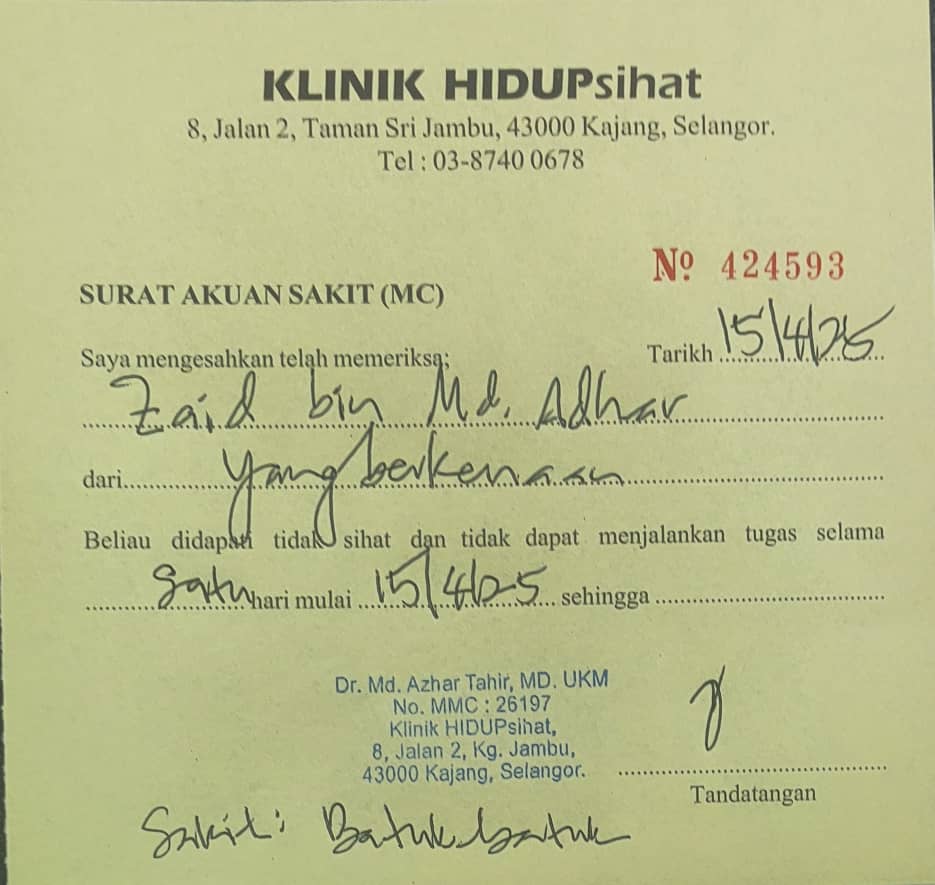 KLINIK HIDUPsihat
8, Jalan 2, Taman Sri Jambu, 43000 Kajang, Selangor.
Tel : 03-8740 0678
Nº 424593
SURAT AKUAN SAKIT (MC)
Saya mengesahkan telah memeriksa; Tarikh 15/4/25
Zaid bin Md. Adhar
dari yang berkenaan
Beliau didapati tidak sihat dan tidak dapat menjalankan tugas selama
Satu hari mulai 15/4/25 sehingga
Dr. Md. Azhar Tahir, MD. UKM
No. MMC : 26197
Klinik HIDUPsihat,
8, Jalan 2, Kg. Jambu,
43000 Kajang, Selangor.
Tandatangan
Sakit: Batuk-batuk